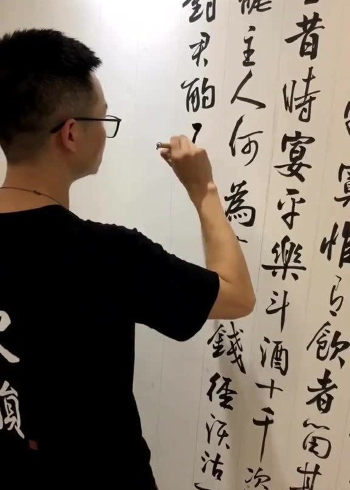 寞惟有飲者留其
昔時宴平樂斗酒十千
主人何為錢徑須沽
對君酌